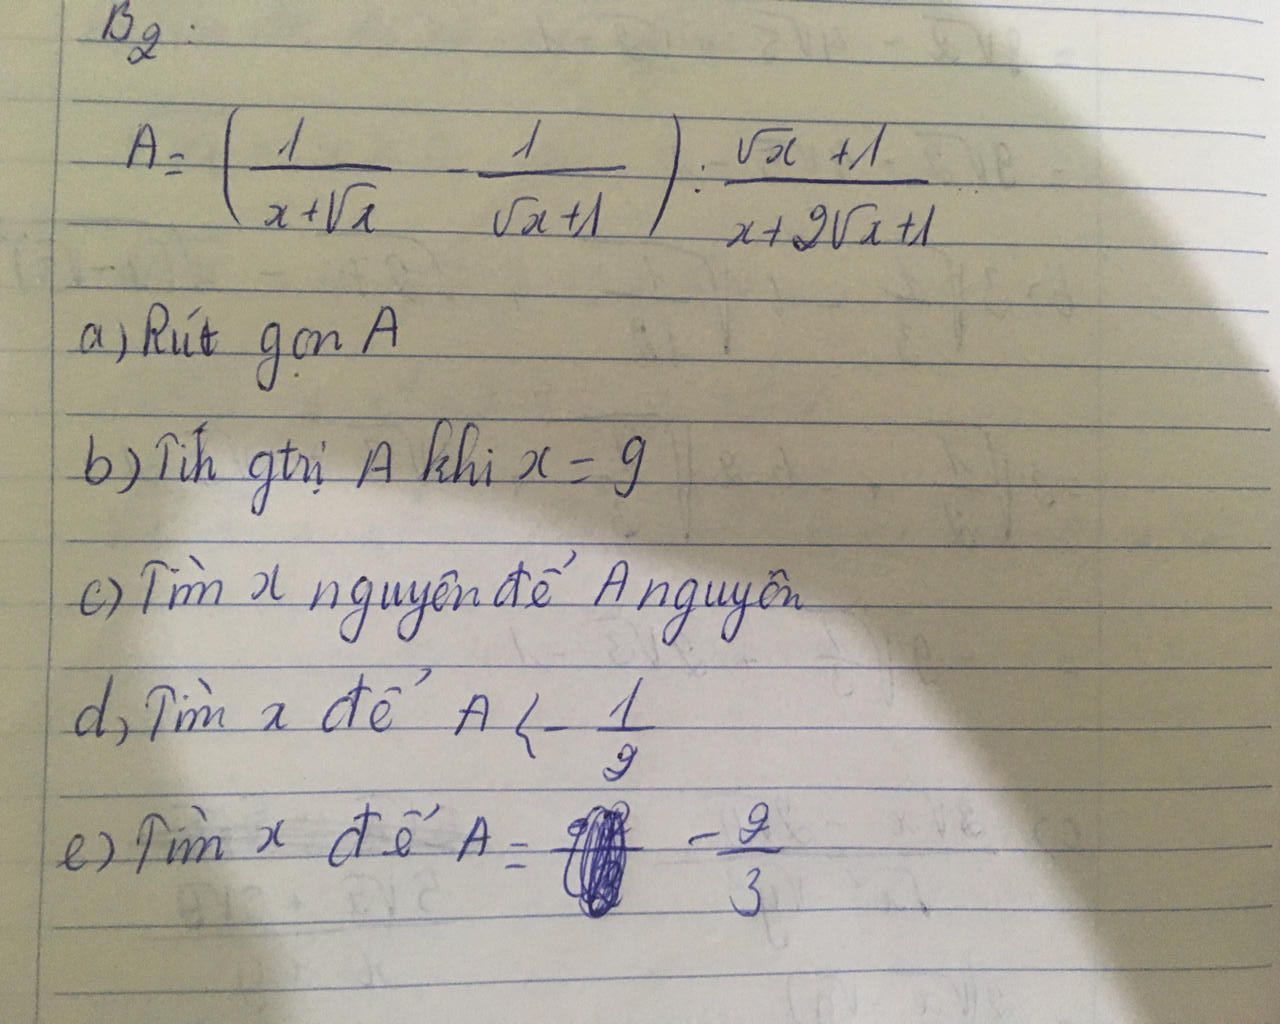 B2:
A = ( 1/(x+√x) - 1/(√x+1) ) : (√x +1)/(x+2√x+1)
a) Rút gọn A
b) Tíh gtrị A khi x = 9
c) Tìm x nguyên để A nguyên
d) Tìm x để A < - 1/2
e) Tìm x để A = - 2/3